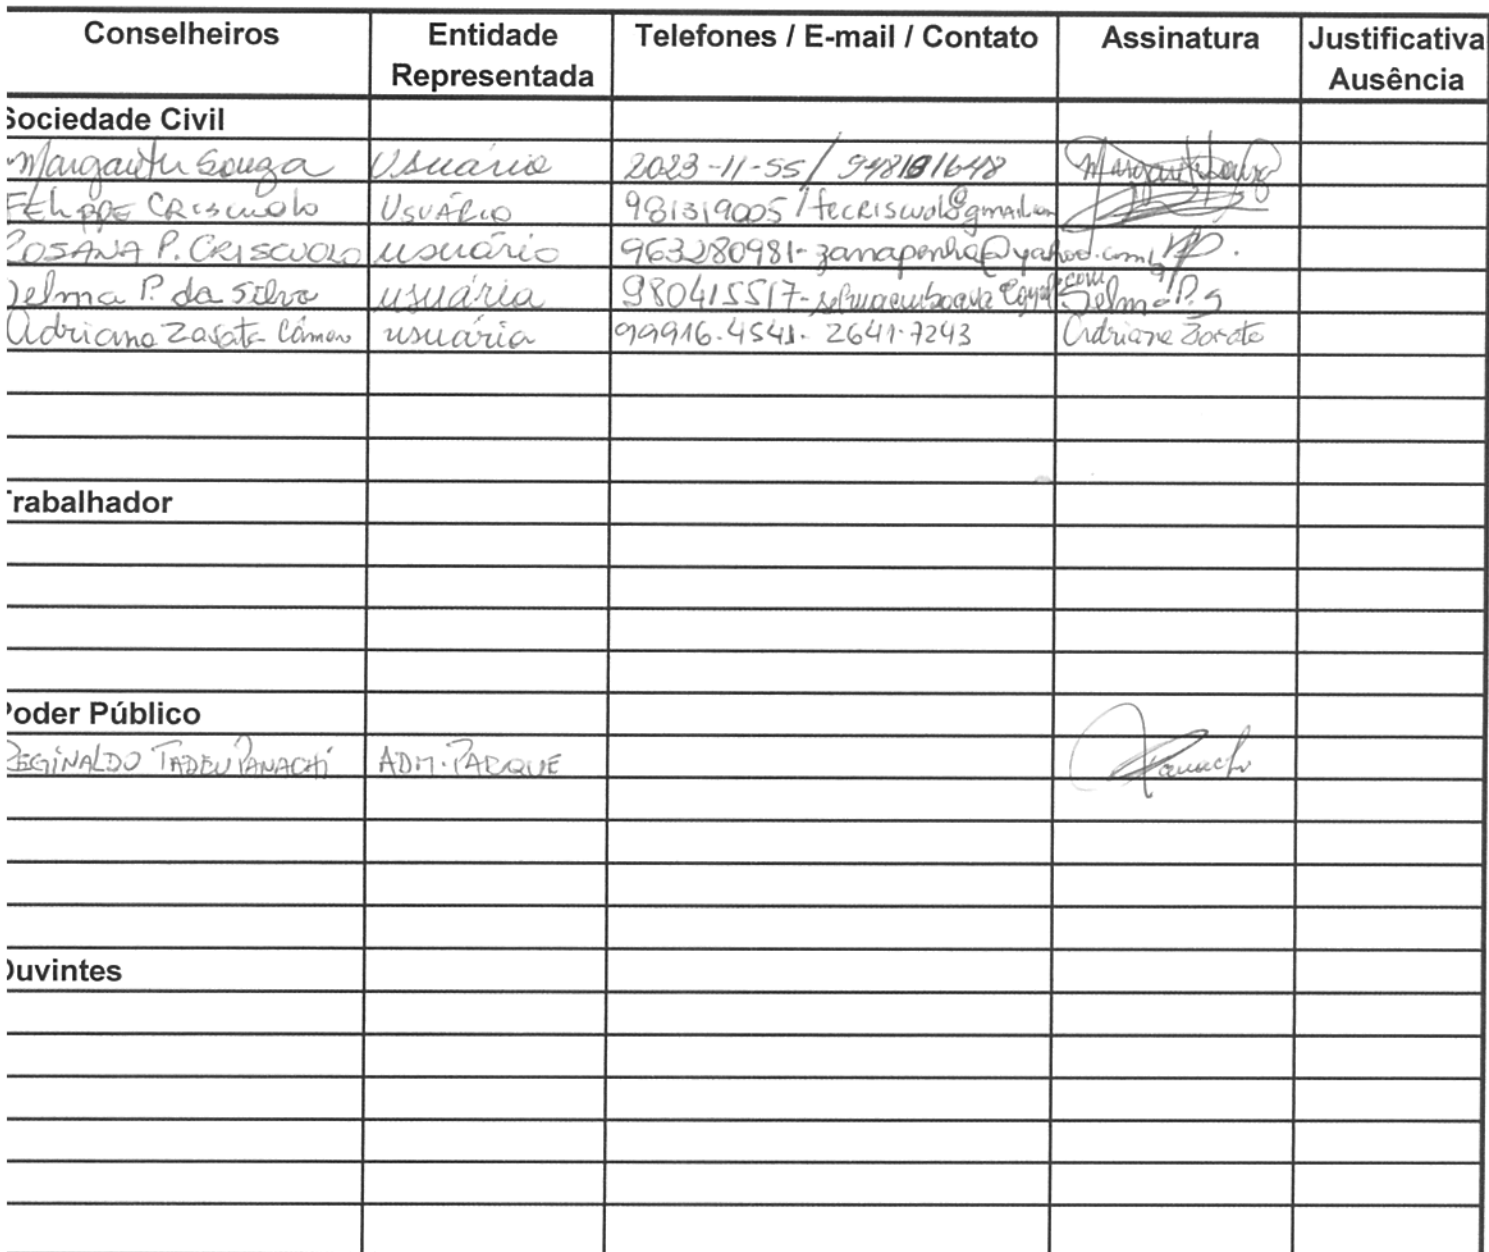 Conselheiros Entidade Representada Telefones / E-mail / Contato Assinatura Justificativa Ausência
Sociedade Civil
Souza Usuário 2023-11-55/
Felippe Criscuolo Usuário 981319005/
Rosana P. Criscuolo usuário 963280981-zanapenha@yahoo.com
Selma P. da Silva usuária 980415517- Selma P. S
Adriana usuária 99916.4541. 2641.7243
Trabalhador
Poder Público
Reginaldo Tadeu Panachi ADM. PARQUE Panachi
Ouvintes